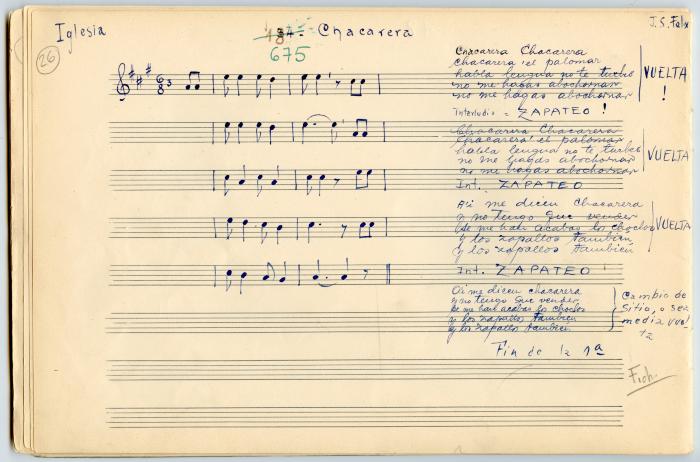 Iglesia
26
Chacarera
675
J. S. Felix
6 3
8
Chacarera Chacarera
Chacarera 'el palomar
habla lengua no te turbes
no me hagas abochornar
no me hagas abochornar
VUELTA !
Interludio = ZAPATEO !
Chacarera Chacarera
Chacarera 'el palomar
habla lengua no te turbes
no me hagas abochornar
no me hagas abochornar
VUELTA
Int. ZAPATEO
Ai me dicen Chacarera
y no tengo que vender
se me han acabao los choclos
y los zapallos tambien
y los zapallos tambien
VUELTA
Int. ZAPATEO
Ai me dicen chacarera
y no tengo que vender
se me han acabao los choclos
y los zapallos tambien
y los zapallos tambien
Cambio de
Sitio, o sea
media vuel
ta
Fin de la 1a
Fich.